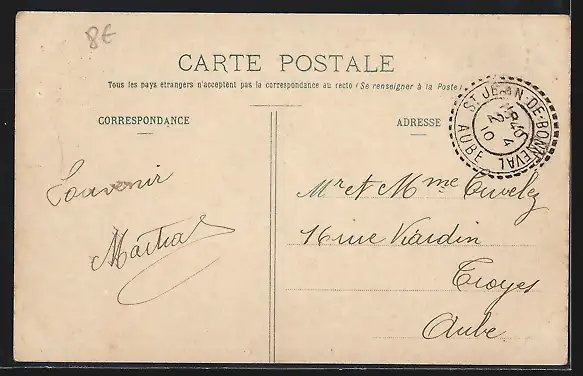 8€
CARTE POSTALE
Tous les pays étrangers n'acceptent pas la correspondance au recto (Se renseigner à la Poste)
CORRESPONDANCE
ADRESSE
ST JEAN-DE-BONNEVAL
AUBE
2
10
Souvenir
Martial
Mr et Mme Cuvelez
16 rue Viardin
Troyes
Aube